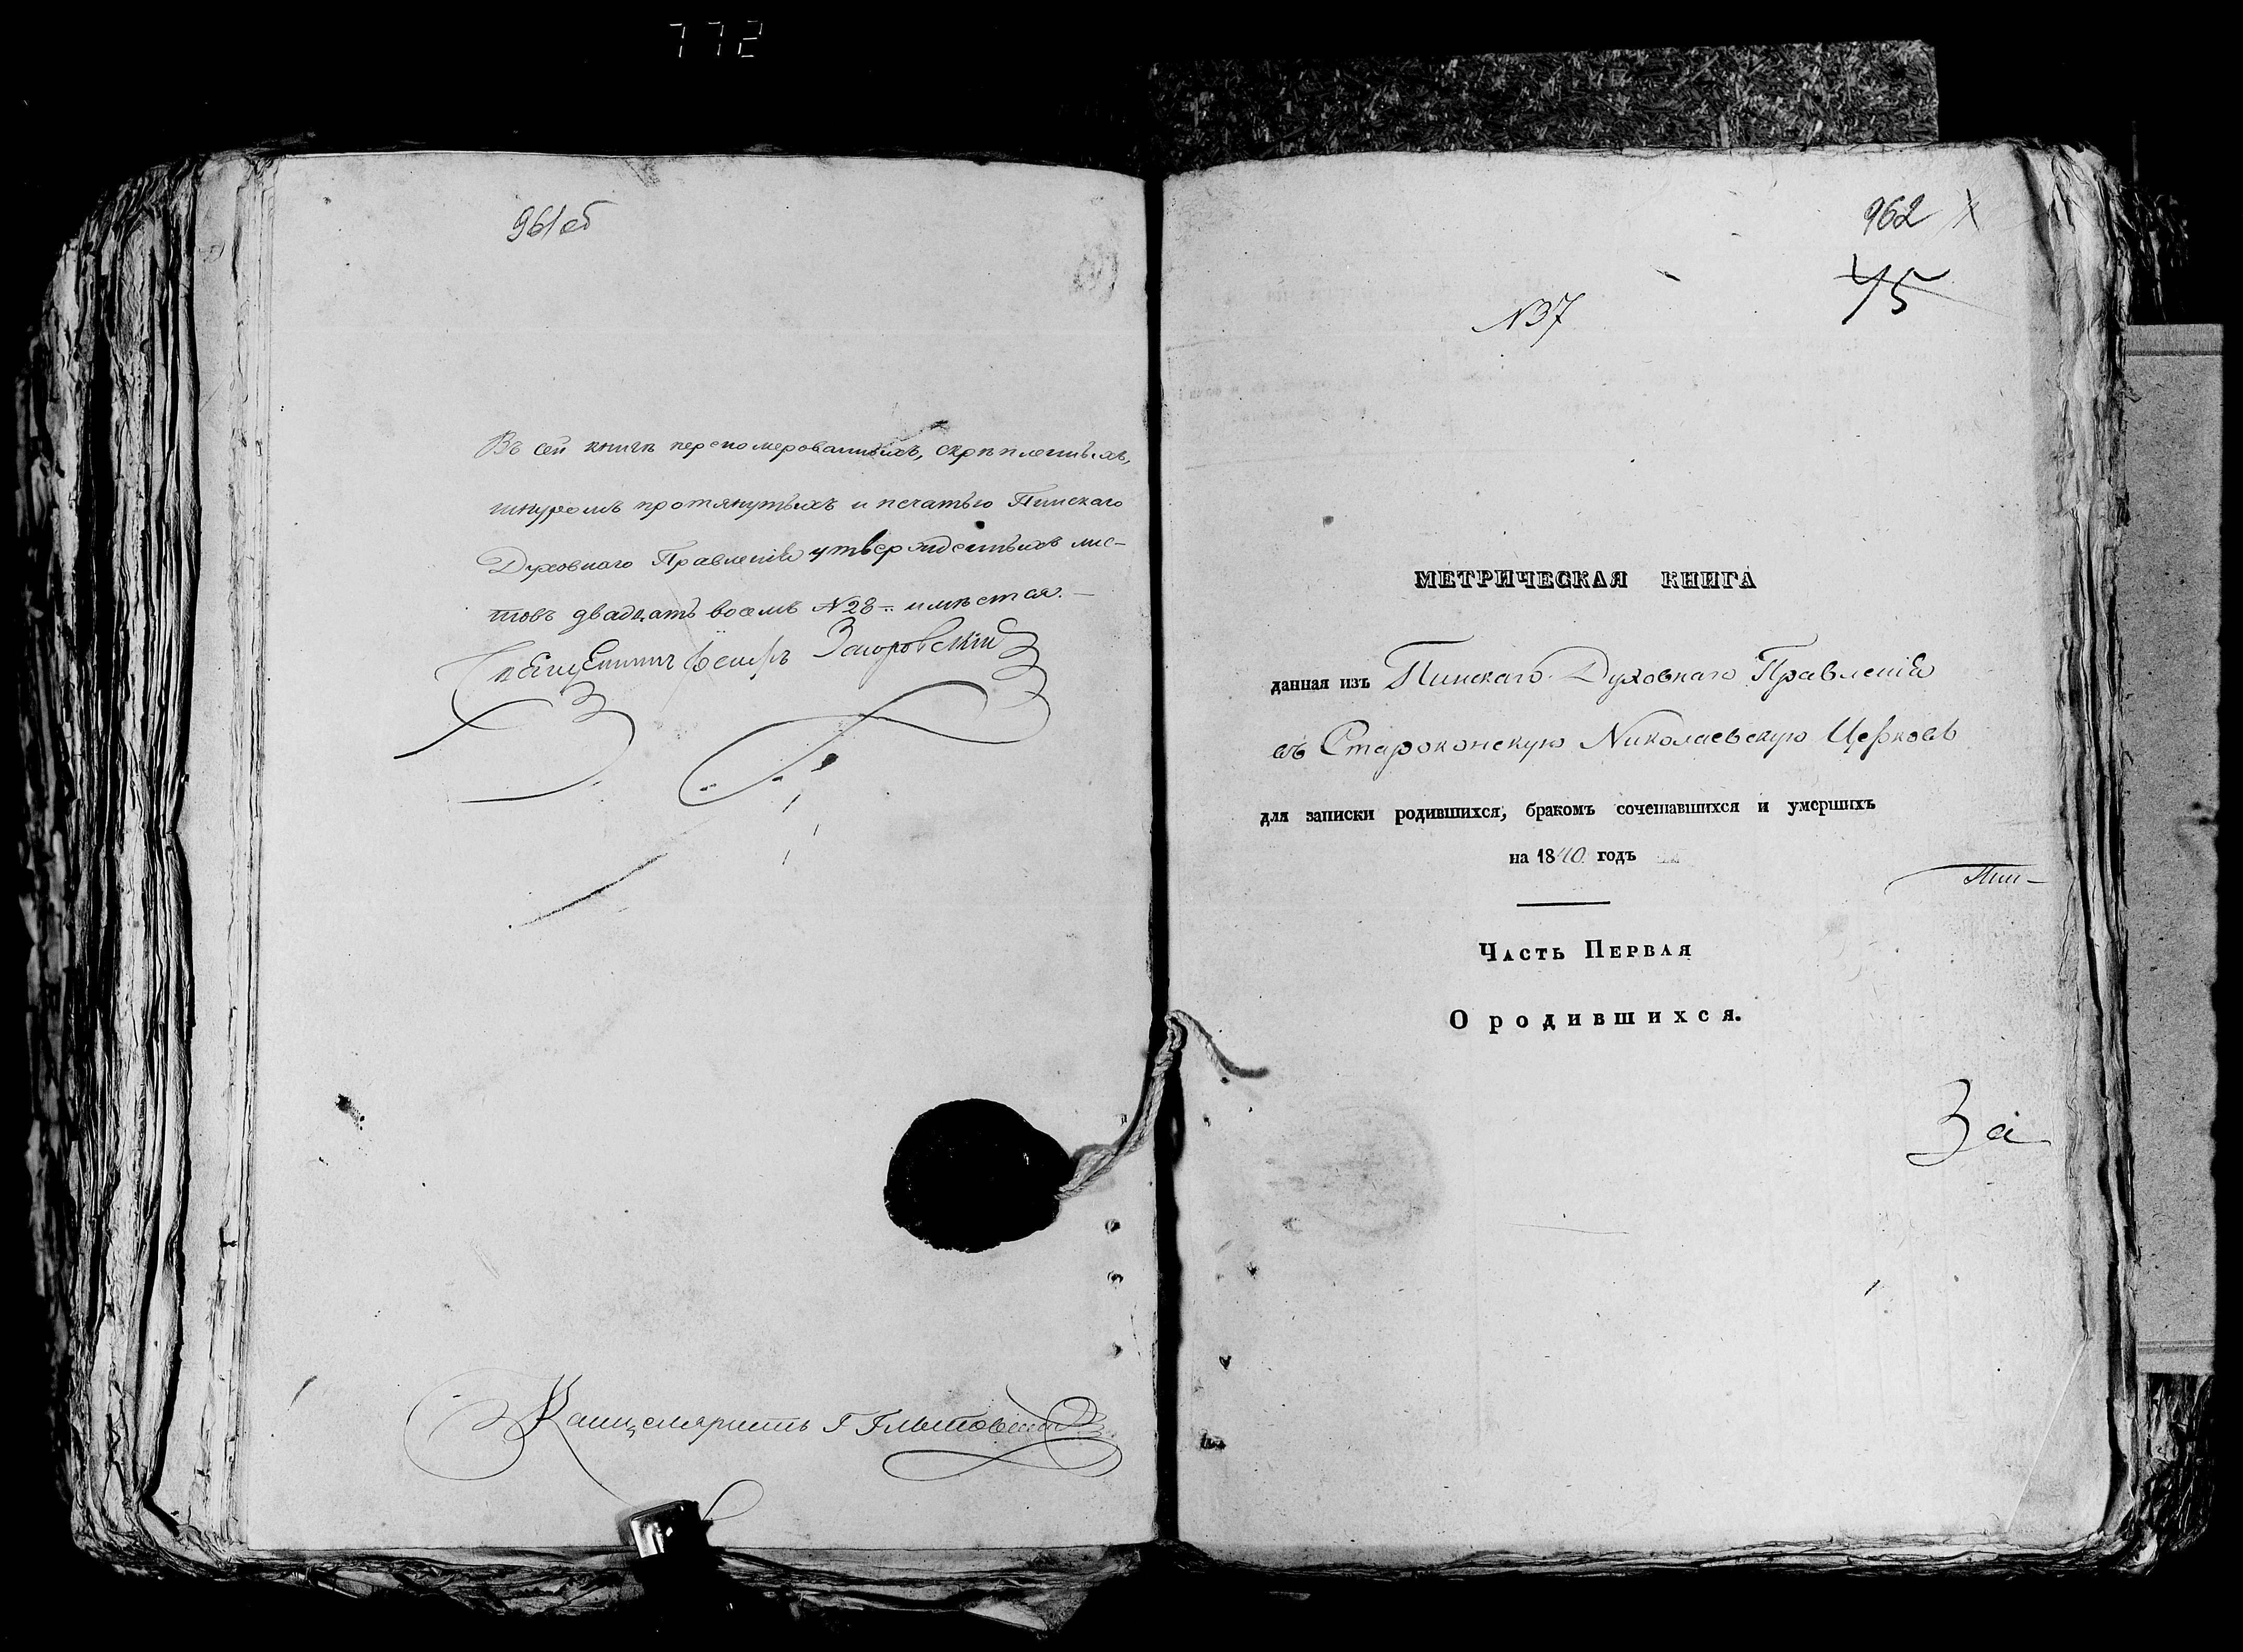 772
961об
Въ сей книгѣ переномерованныхъ, скрѣпленныхъ,
шнуромъ протянутыхъ и печатью Пинскаго
Духовнаго Правленія утвержденныхъ лис-
товъ двадцать восемь N28 имѣется.
Загоровскій
Канцеляристъ Г
962
45
N37
МЕТРИЧЕСКАЯ КНИГА
данная изъ Пинскаго Духовнаго Правленія
въ Староконскую Николаевскую Церковь
для записки родившихся, бракомъ сочетавшихся и умершихъ
на 1840 годъ
Пин-
Часть Первая
О родившихся.
За